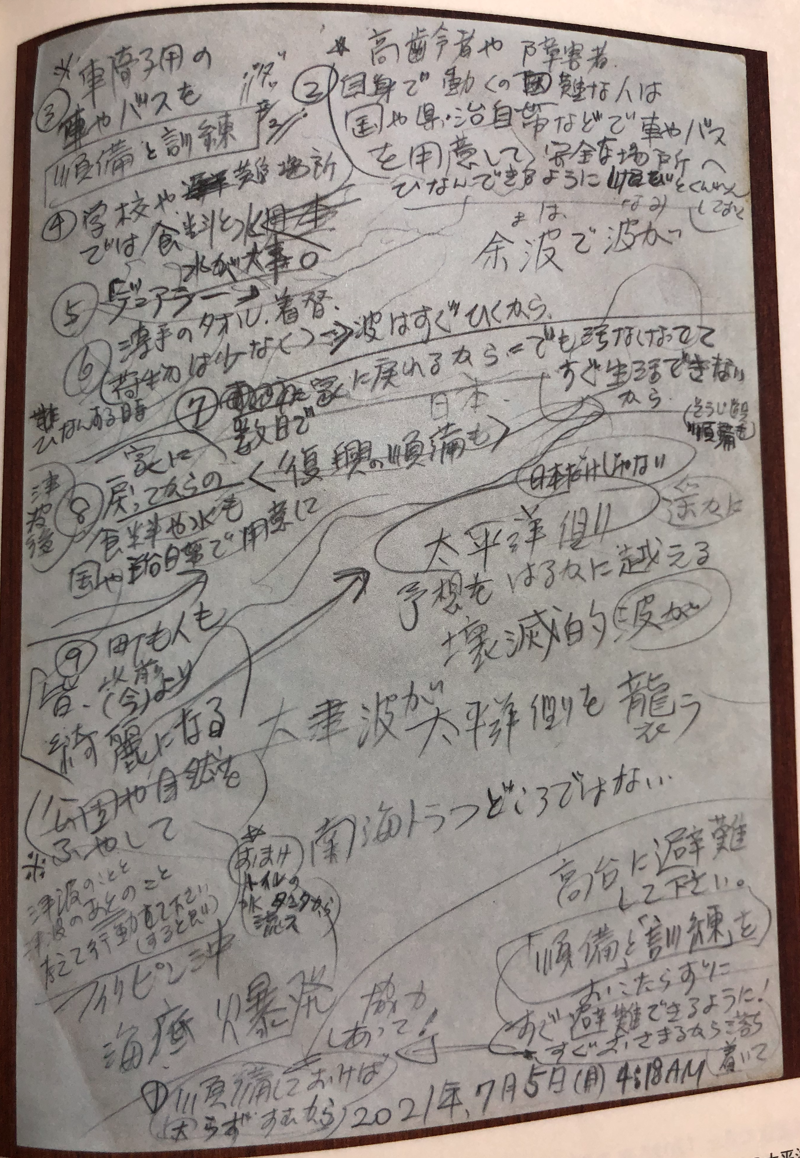 ※ 車椅子用の
③ 車やバスを
準備と訓練
② ※ 高齢者や障害者
自身で動くの困難な人は
国や県・治自帯などで車やバス
を用意して安全な場所へ
ひなんできるように
しておく
④ 学校や避難場所
では食料と水
水が大事。
余波で波が
⑤ デュアラー
⑥ 薄手のタオル、着替、
(荷物は少なく)→波はすぐひくから、
ひなんする時
⑦ 家に戻れるから=でも
数日で
すぐ生活できない
から、
準備も
日本
津波後
⑧ 家に
戻ってからの〈復興の準備も〉
食料や水も
国や
で用意して
日本だけじゃない
太平洋側
予想をはるかに越える
壊滅的 波が
⑨ 町も人も
皆、以前
(今)より
綺麗になる
公園や自然を
ふやして
大津波が太平洋側を襲う
南海トラフどころではない
※ おまけ
トイレの
水
タンクから
流ス
※ 津波のことと
津波のあとのこと
考えて行動
して下さい
(すると良い)
高台に避難
して下さい。
「準備」と「訓練」を
おこたらずに
すぐ避難できるように!
すぐおさまるから落ち
着いて
フィリピン沖
海底爆発
協力
しあって!
① 準備しておけば
すむから
2021年、7月5日(月) 4:18AM